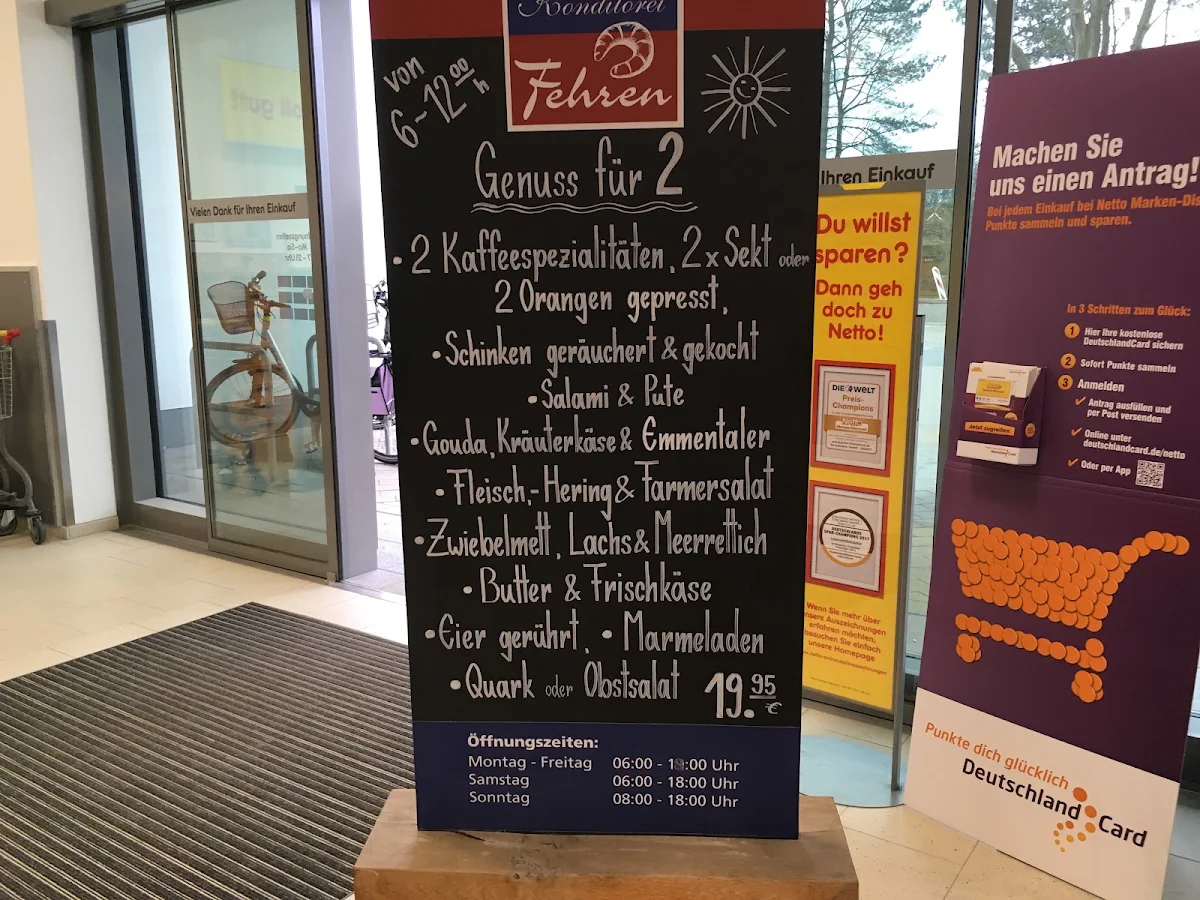 Konditorei
Fehren
von
6-12 00 h
Genuss für 2
• 2 Kaffeespezialitäten, 2 x Sekt oder
2 Orangen gepresst,
• Schinken geräuchert & gekocht
• Salami & Pute
• Gouda, Kräuterkäse & Emmentaler
• Fleisch,- Hering & Farmersalat
• Zwiebelmett, Lachs & Meerrettich
• Butter & Frischkäse
• Eier gerührt, • Marmeladen
• Quark oder Obstsalat 19.95 €
Öffnungszeiten:
Montag - Freitag 06:00 - :00 Uhr
Samstag 06:00 - 18:00 Uhr
Sonntag 08:00 - 18:00 Uhr
Vielen Dank für Ihren Einkauf
Mo-Sa
Ihren Einkauf
Du willst
sparen?
Dann geh
doch zu
Netto!
DIE WELT
Preis-
Champions
Wenn Sie mehr über
unsere Auszeichnungen
erfahren möchten,
besuchen Sie einfach
unsere Homepage
Machen Sie
uns einen Antrag!
Bei jedem Einkauf bei Netto Marken-Dis
Punkte sammeln und sparen.
In 3 Schritten zum Glück:
1 Hier Ihre kostenlose
DeutschlandCard sichern
2 Sofort Punkte sammeln
3 Anmelden
Antrag ausfüllen und
per Post versenden
Online unter
deutschlandcard.de/netto
Oder per App
Jetzt zugreifen
Punkte dich glücklich
DeutschlandCard